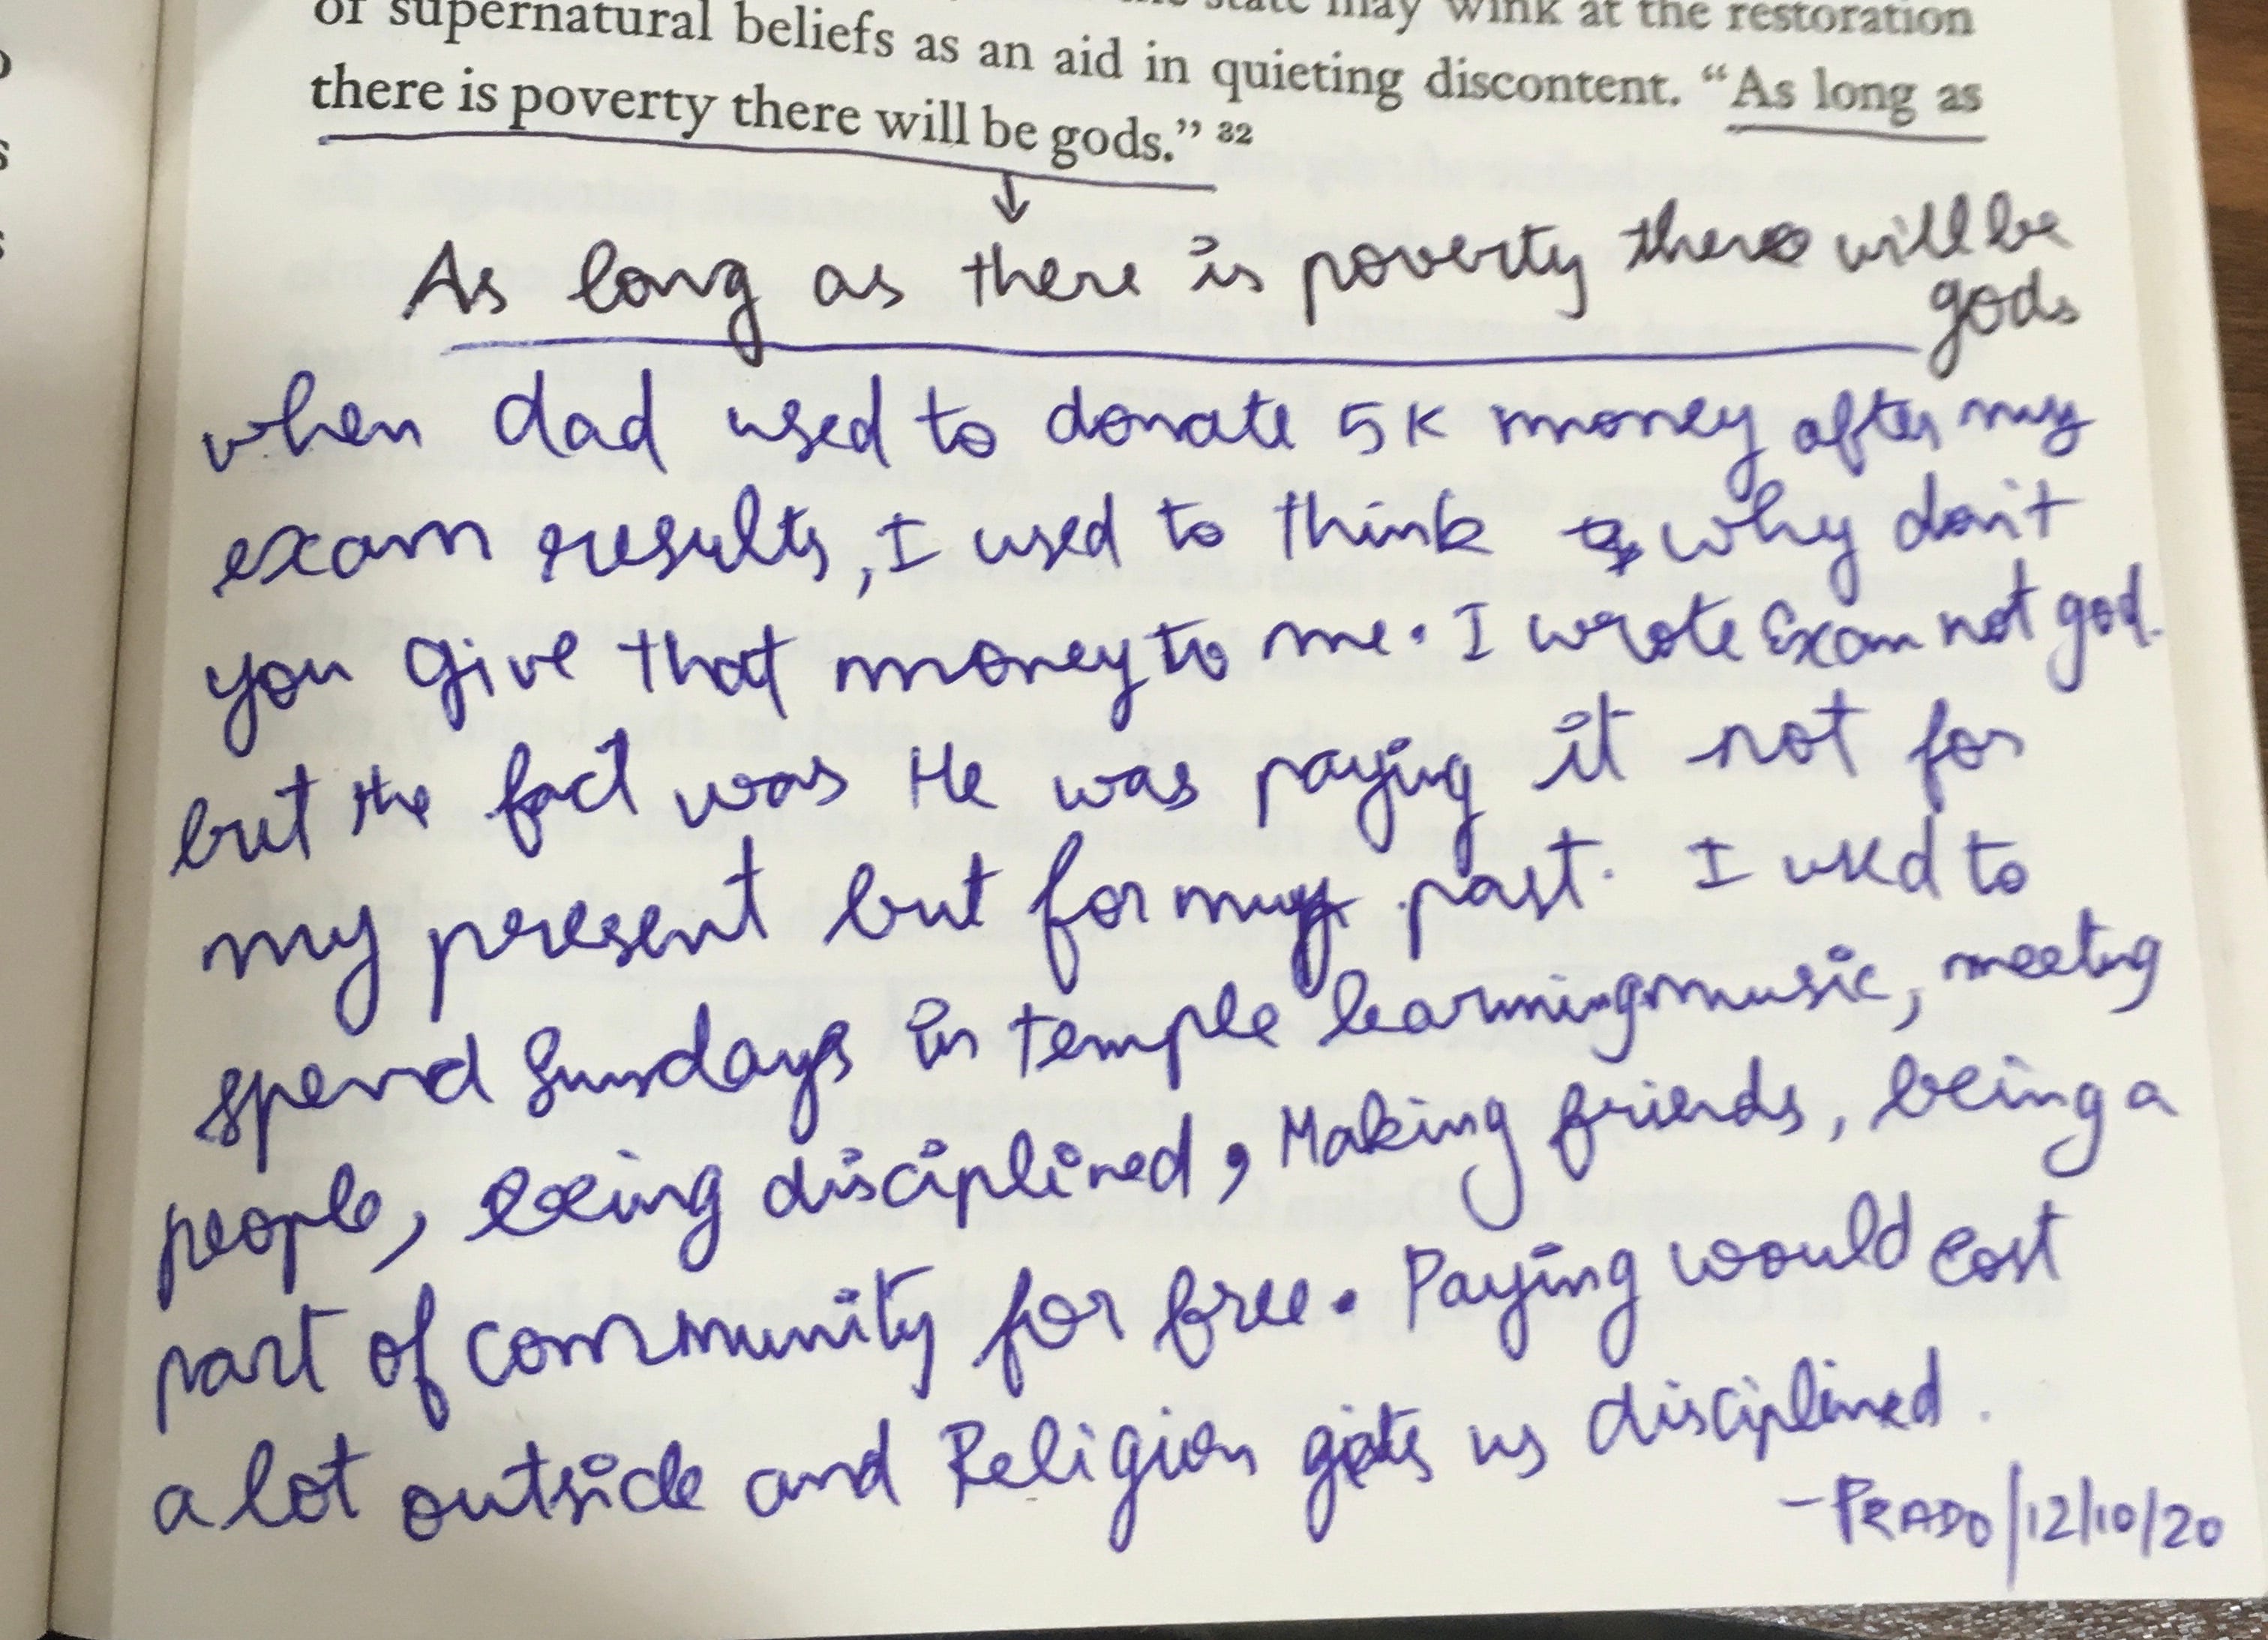 state may wink at the restoration
of supernatural beliefs as an aid in quieting discontent. “As long as
there is poverty there will be gods.” 32
As long as there is poverty there will be
gods
when dad used to donate 5K money after my
exam results, I used to think why don't
you give that money to me. I wrote Exam not god.
but the fact was He was paying it not for
my present but for my past. I used to
spend Sundays in temple learning music, meeting
people, being disciplined, Making friends, being a
part of community for free. Paying would cost
a lot outside and Religion gets us disciplined.
- PRADO/12/10/20